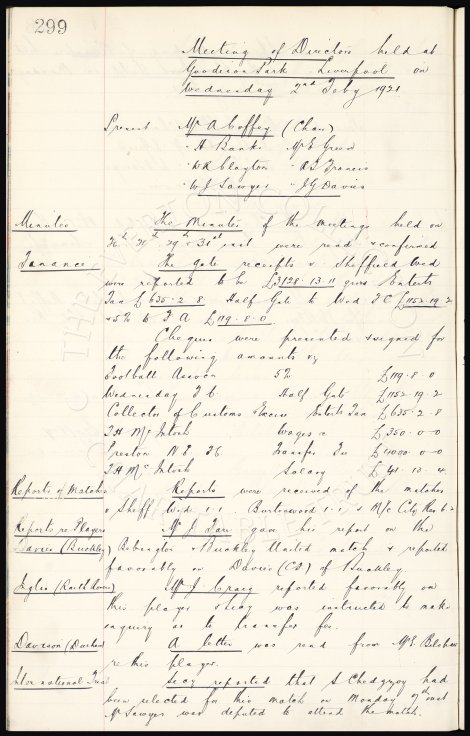 299
Meeting of Directors held at
Goodison Park Liverpool on
Wednesday 2nd Feby 1921
Present Mr A Coffey (Chair)
" A Banks Mr E Green
" W R Clayton " A T Francis
" W J Sawyer " J G Davies
Minutes The Minutes of the meetings held on
29th & 31st inst were read & confirmed
Finance The gate receipts v Sheffield Wed
were reported to be £3128. 13. 11 gross Enterts
Tax £635. 2. 8 Half Gate to Wed F C £1152. 19. 2
& 5% to F A £119. 8. 0
Cheques were presented & signed for
the following amounts viz
Football Assocn 5% £119. 8. 0
Wednesday F C Half Gate £1152. 19. 2
Collector of Customs & Excise Enterts Tax £635. 2. 8
T H McIntosh Wages £350. 0. 0
Preston N E FC Transfer Fee £4000. 0. 0
T H McIntosh Salary £41. 13. 4
Reports of Matches Reports were received of the matches
v Sheff Wed 1.1 Burtonwood & M/c City Res
Reports re Players Mr J Farr gave his report on the
Davies (Buckley) Bebington v Buckley United match & reported
favorably on Davies of Buckley.
Inglis (Raith Rovers) Mr J Craig reported favorably on
this player & Secy was instructed to make
enquiry as to transfer fee.
Davison (Durham) A letter was read from Mr E
re this player.
International Trial Secy reported that S Chedgzoy had
been selected for this match on Monday 7th inst
Mr Sawyer was deputed to attend the match.